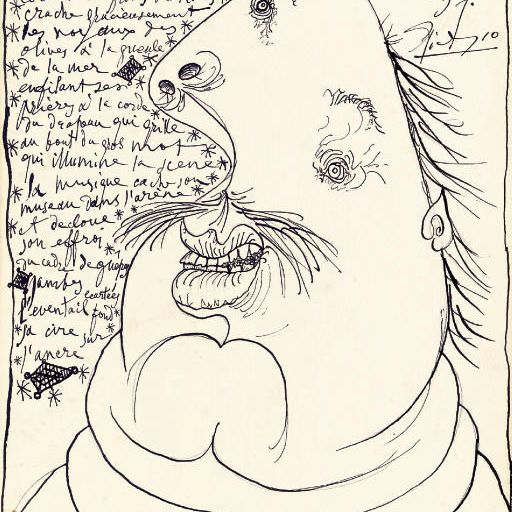 crache gracieusement
les noyaux des
olives à la gueule
de la mer
enfilant ses
prières à la corde
du drapeau qui grille
au bout du gros mot
qui illumine la scène
la musique cache son
museau dans l'arène
et décloue
son effroi
du cadre de guêpes
jambes écartées
l'éventail fond
sa cire sur
l'ancre
Picasso